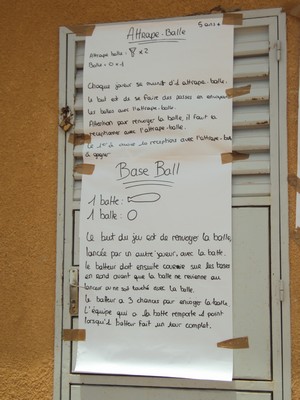 Attrape-Balle
5 ans +
Attrape balle : x 2
Balle : O x 1
Chaque joueur se munit d'1 attrape-balle.
Le but est de se faire des passes en envoyant
les balles avec l'attrape-balle.
Attention pour renvoyer la balle, il faut la
réceptionner avec l'attrape-balle.
Le 1er à avoir
à gagné
Base Ball
1 batte :
1 balle : O
Le but du jeu est de renvoyer la balle,
lancée par un autre joueur, avec la batte.
Le batteur doit ensuite courir sur les bases
en rond avant que la balle ne revienne au
lanceur ou ne soit touché avec la balle.
Le batteur a 3 chances pour envoyer la balle.
L'équipe qui a la batte remporte 1 point
lorsqu'1 batteur fait un tour complet.